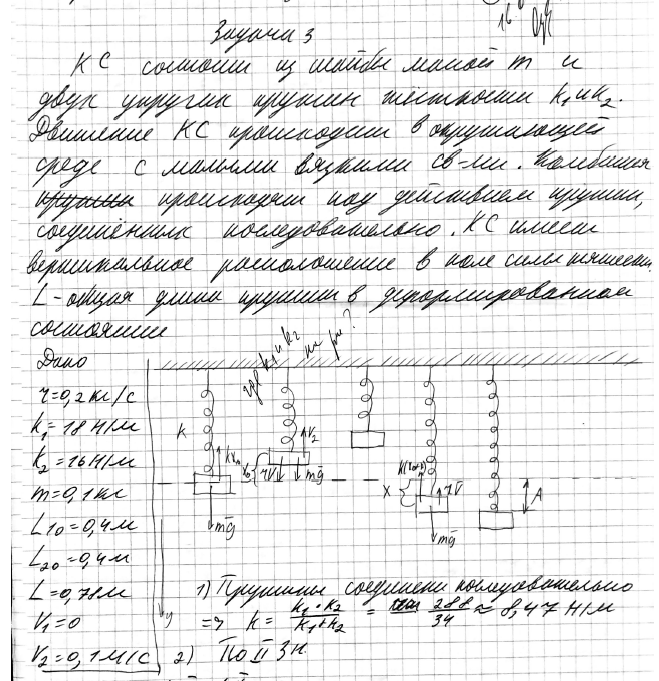 16
Задача 3
КС состоит из шайбы массой m и
двух упругих пружин жесткости k₁ и k₂.
Движение КС происходит в окружающей
среде с малыми вязкими св-ми. Колебания
пружины происходят под действием пружин,
соединённых последовательно. КС имеет
вертикальное расположение в поле силы тяжести.
L - общая длина пружин в деформированном
состоянии
Дано
где k₁ и k₂ на рис?
r=0,2 кг/с
k₁=18 Н/м
k₂=16 Н/м
m=0,1 кг
L₁₀=0,4 м
L₂₀=0,4 м
L=0,78 м
V₁=0
V₂=0,1 м/с
K
mg
V₂
X₀
rV
mg
X
rV
mg
A
y
1) Пружины соединены последовательно
=> k = k₁·k₂ / k₁+k₂ = 288 / 34 ≈ 8,47 Н/м
2) По II ЗН